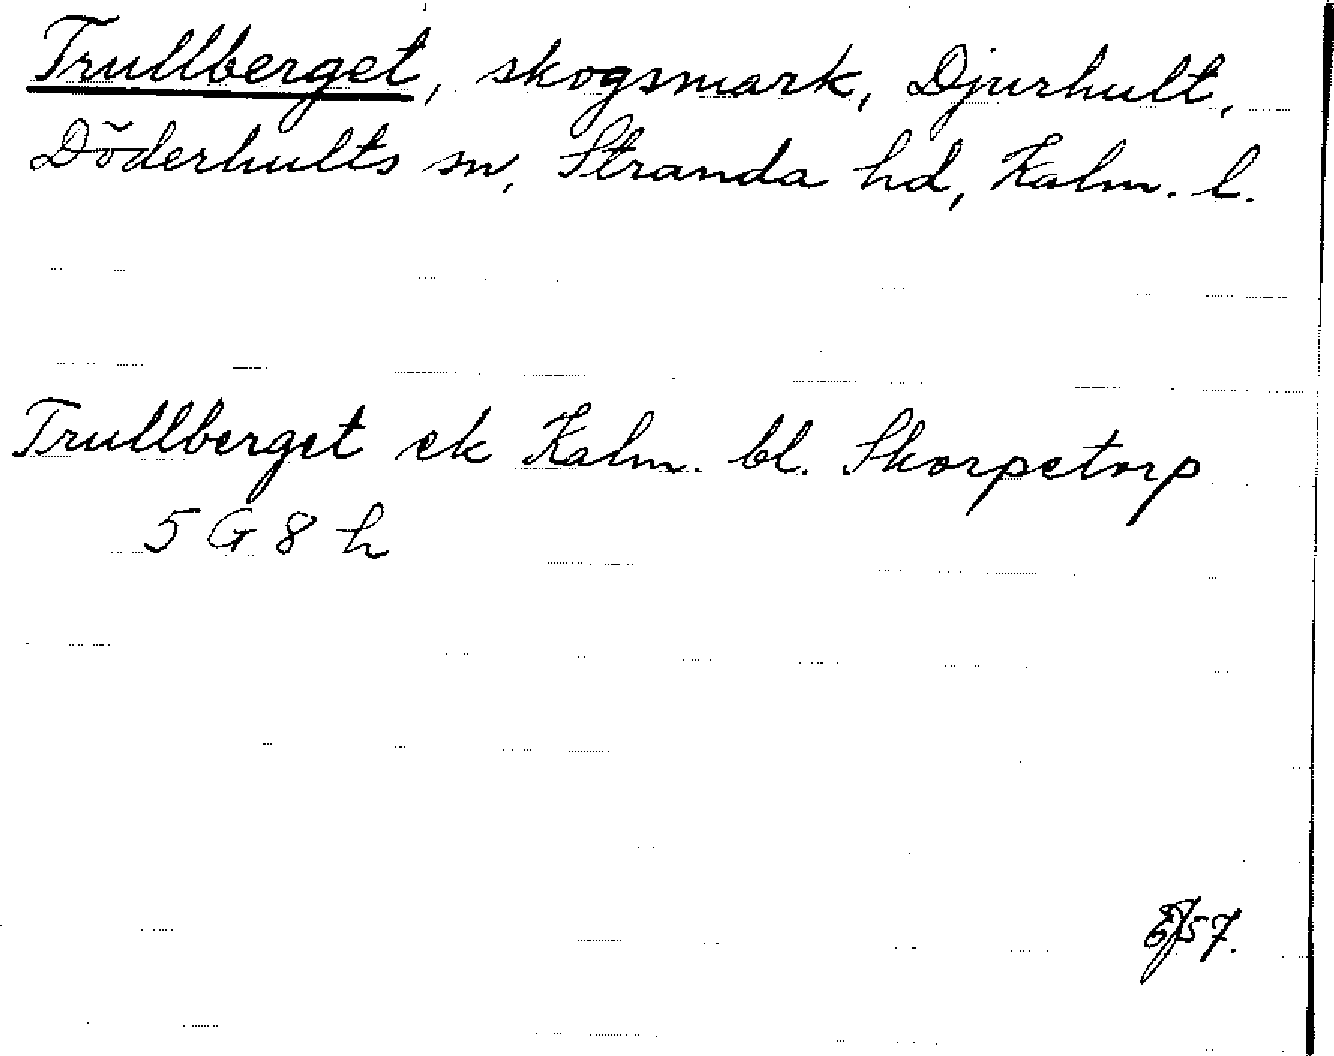 Trullberget, skogsmark, Djurhult,
Döderhults sn, Stranda hd, Kalm. l.
Trullberget ek Kalm. bl. Skorpetorp
5 G 8 h